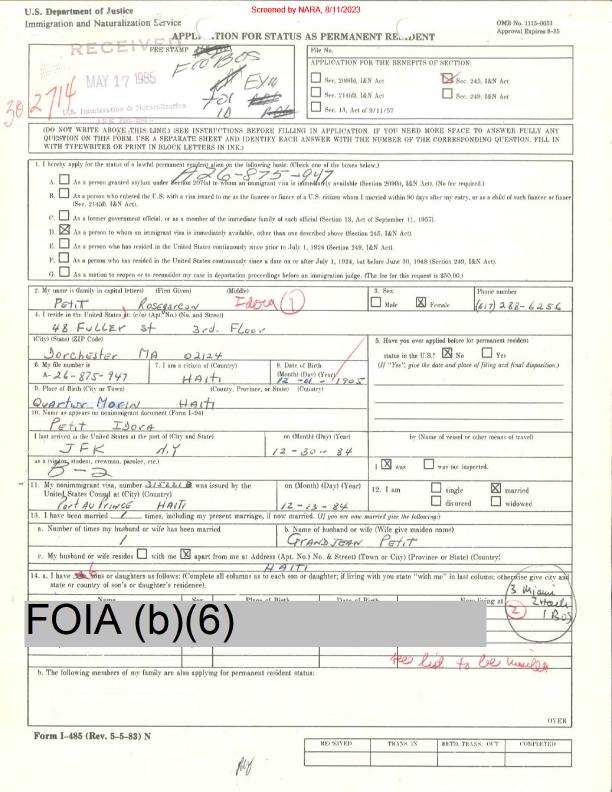 Screened by NARA, 8/11/2023
U.S. Department of Justice
Immigration and Naturalization Service
OMB No. 1115-0053
Approval Expires 8-85
APPLICATION FOR STATUS AS PERMANENT RESIDENT
RECEIVED
FEE STAMP
MAY 17 1985
U.S. Immigration & Naturalization
302714
File No.
APPLICATION FOR THE BENEFITS OF SECTION:
Sec. 209(b), I&N Act
Sec. 245, I&N Act
Sec. 214(d), I&N Act
Sec. 249, I&N Act
Sec. 13, Act of 9/11/57
(DO NOT WRITE ABOVE THIS LINE.) (SEE INSTRUCTIONS BEFORE FILLING IN APPLICATION. IF YOU NEED MORE SPACE TO ANSWER FULLY ANY
QUESTION ON THIS FORM, USE A SEPARATE SHEET AND IDENTIFY EACH ANSWER WITH THE NUMBER OF THE CORRESPONDING QUESTION. FILL IN
WITH TYPEWRITER OR PRINT IN BLOCK LETTERS IN INK.)
1. I hereby apply for the status of a lawful permanent resident alien on the following basis: (Check one of the boxes below.)
A26-875-947
A. As a person granted asylum under Section 207(a) to whom an immigrant visa is immediately available (Section 209(b), I&N Act). (No fee required.)
B. As a person who entered the U.S. with a visa issued to me as the fiancee or fiance of a U.S. citizen whom I married within 90 days after my entry, or as a child of such fiancee or fiance
(Sec. 214(d), I&N Act).
C. As a former government official, or as a member of the immediate family of such official (Section 13, Act of September 11, 1957).
D. As a person to whom an immigrant visa is immediately available, other than one described above (Section 245, I&N Act).
E. As a person who has resided in the United States continuously since prior to July 1, 1924 (Section 249, I&N Act).
F. As a person who has resided in the United States continuously since a date on or after July 1, 1924, but before June 30, 1948 (Section 249, I&N Act).
G. As a motion to reopen or to reconsider my case in deportation proceedings before an immigration judge. (The fee for this request is $50.00.)
2. My name is (Family in capital letters) (First Given) (Middle)
PETIT ROSEGARCON Idora 1
3. Sex
Male Female
Phone number
(617) 288-6256
4. I reside in the United States at: (c/o) (Apt. No.) (No. and Street)
48 FULLER St 3rd. FLOOR
(City) (State) (ZIP Code)
Dorchester MA 02124
5. Have you ever applied before for permanent resident
status in the U.S.? No Yes
(If "Yes", give the date and place of filing and final disposition.)
6. My file number is
A-26-875-947
7. I am a citizen of (Country)
HAITI
8. Date of Birth
(Month) (Day) (Year)
12-01-1905
9. Place of Birth (City or Town) (County, Province, or State) (Country)
QUARTIER MORIN HAITI
10. Name as appears on nonimmigrant document (Form I-94)
PETIT IDORA
I last arrived in the United States at the port of (City and State)
JFK N.Y
on (Month) (Day) (Year)
12-30-84
by (Name of vessel or other means of travel)
as a (visitor, student, crewman, parolee, etc.)
B-2
I was was not inspected.
11. My nonimmigrant visa, number 315221B was issued by the
United States Consul at (City) (Country)
PORT AU PRINCE HAITI
on (Month) (Day) (Year)
12-13-84
12. I am single married
divorced widowed
13. I have been married 1 times, including my present marriage, if now married. (If you are now married give the following:)
a. Number of times my husband or wife has been married
1
b. Name of husband or wife (Wife give maiden name)
GRANDJEAN PETIT
c. My husband or wife resides with me apart from me at Address (Apt. No.) No. & Street) (Town or City) (Province or State) (Country)
HAITI
14. a. I have 6 sons or daughters as follows: (Complete all columns as to each son or daughter; if living with you state "with me" in last column; otherwise give city and
state or country of son's or daughter's residence).
Name Sex Place of Birth Date of Birth Now living at
3 Miami
2 Haiti
1 BOS
2
FOIA (b)(6)
b. The following members of my family are also applying for permanent resident status:
OVER
Form I-485 (Rev. 5-5-83) N
RECEIVED TRANS. IN RET'D. TRANS. OUT COMPLETED